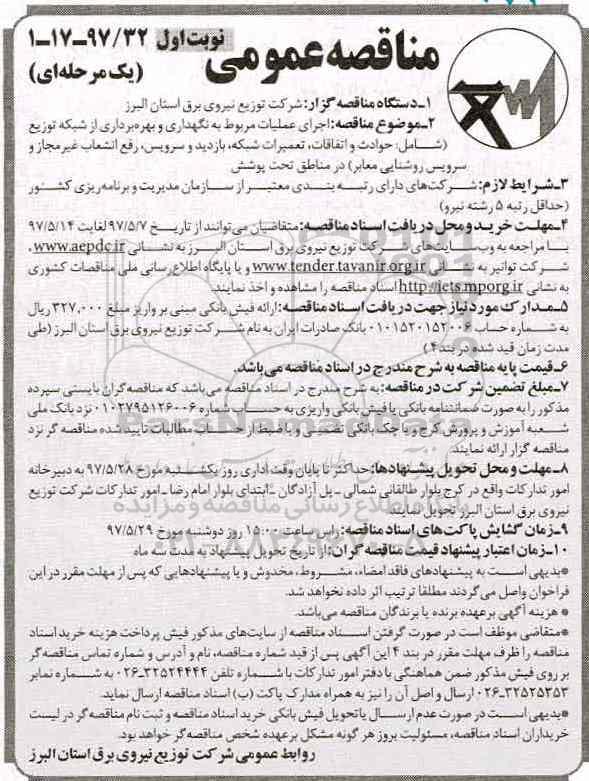 مناقصه عمومی
نوبت اول ۹۷/۳۲-۱۷-۱
(یک مرحله‌ای)
۱ـ دستگاه مناقصه گزار: شرکت توزیع نیروی برق استان البرز
۲ـ موضوع مناقصه: اجرای عملیات مربوط به نگهداری و بهره‌برداری از شبکه توزیع
(شامل: حوادث و اتفاقات، تعمیرات شبکه، بازدید و سرویس، رفع انشعاب غیرمجاز و
سرویس روشنایی معابر) در مناطق تحت پوشش
۳ـ شرایط لازم: شرکت‌های دارای رتبه بندی معتبر از سازمان مدیریت و برنامه‌ریزی کشور
(حداقل رتبه ۵ رشته نیرو)
۴ـ مهلت خرید و محل دریافت اسناد مناقصه: متقاضیان می‌توانند از تاریخ ۹۷/۵/۷ لغایت ۹۷/۵/۱۴
با مراجعه به وب سایت‌های شرکت توزیع نیروی برق استان البرز به نشانی www.aepdc.ir،
شرکت توانیر به نشانی www.tender.tavanir.org.ir و یا پایگاه اطلاع رسانی ملی مناقصات کشوری
به نشانی http://iets.mporg.ir اسناد مناقصه را مشاهده و اخذ نمایند.
۵ـ مدارک مورد نیاز جهت دریافت اسناد مناقصه: ارائه فیش بانکی مبنی بر واریز مبلغ ۳۲۷,۰۰۰ ریال
به شماره حساب ۰۱۰۱۵۲۰۱۵۲۰۰۶ بانک صادرات ایران به نام شرکت توزیع نیروی برق استان البرز (طی
مدت زمان قید شده در بند ۴)
۶ـ قیمت پایه مناقصه به شرح مندرج در اسناد مناقصه می‌باشد.
۷ـ مبلغ تضمین شرکت در مناقصه: به شرح مندرج در اسناد مناقصه می‌باشد که مناقصه گران بایستی سپرده
مذکور را به صورت ضمانتنامه بانکی یا فیش بانکی واریزی به حساب شماره ۰۱۰۲۷۹۵۱۲۶۰۰۶ نزد بانک ملی
شعبه آموزش و پرورش کرج و یا چک بانکی تضمینی و یا ضبط از حساب مطالبات تایید شده مناقصه گر نزد
مناقصه گزار ارائه نمایند.
۸ـ مهلت و محل تحویل پیشنهادها: حداکثر تا پایان وقت اداری روز یکشنبه مورخ ۹۷/۵/۲۸ به دبیرخانه
امور تدارکات واقع در کرج بلوار طالقانی شمالی ـ پل آزادگان ـ ابتدای بلوار امام رضا ـ امور تدارکات شرکت توزیع
نیروی برق استان البرز تحویل نمایند.
۹ـ زمان گشایش پاکت‌های اسناد مناقصه: راس ساعت ۱۵:۰۰ روز دوشنبه مورخ ۹۷/۵/۲۹
۱۰ـ زمان اعتبار پیشنهاد قیمت مناقصه گران: از تاریخ تحویل پیشنهاد به مدت سه ماه
*بدیهی است به پیشنهادهای فاقد امضاء، مشروط، مخدوش و یا پیشنهادهایی که پس از مهلت مقرر در این
فراخوان واصل می‌گردند مطلقا ترتیب اثر داده نخواهد شد.
* هزینه آگهی برعهده برنده یا برندگان مناقصه می‌باشد.
*متقاضی موظف است در صورت گرفتن اسناد مناقصه از سایت‌های مذکور فیش پرداخت هزینه خرید اسناد
مناقصه را ظرف مهلت مقرر در بند ۴ این آگهی پس از قید شماره مناقصه، نام و آدرس و شماره تماس مناقصه گر
بر روی فیش مذکور ضمن هماهنگی با دفتر امور تدارکات با شماره تلفن ۳۲۵۲۴۴۴۴-۰۲۶ به شماره نمابر
۳۲۵۲۵۲۵۳-۰۲۶ ارسال و اصل آن را نیز به همراه مدارک پاکت (ب) اسناد مناقصه ارسال نماید.
*بدیهی است در صورت عدم ارسال یا تحویل فیش بانکی خرید اسناد مناقصه و ثبت نام مناقصه گر در لیست
خریداران اسناد مناقصه، مسئولیت بروز هر گونه مشکل برعهده شخص مناقصه گر خواهد بود.
روابط عمومی شرکت توزیع نیروی برق استان البرز